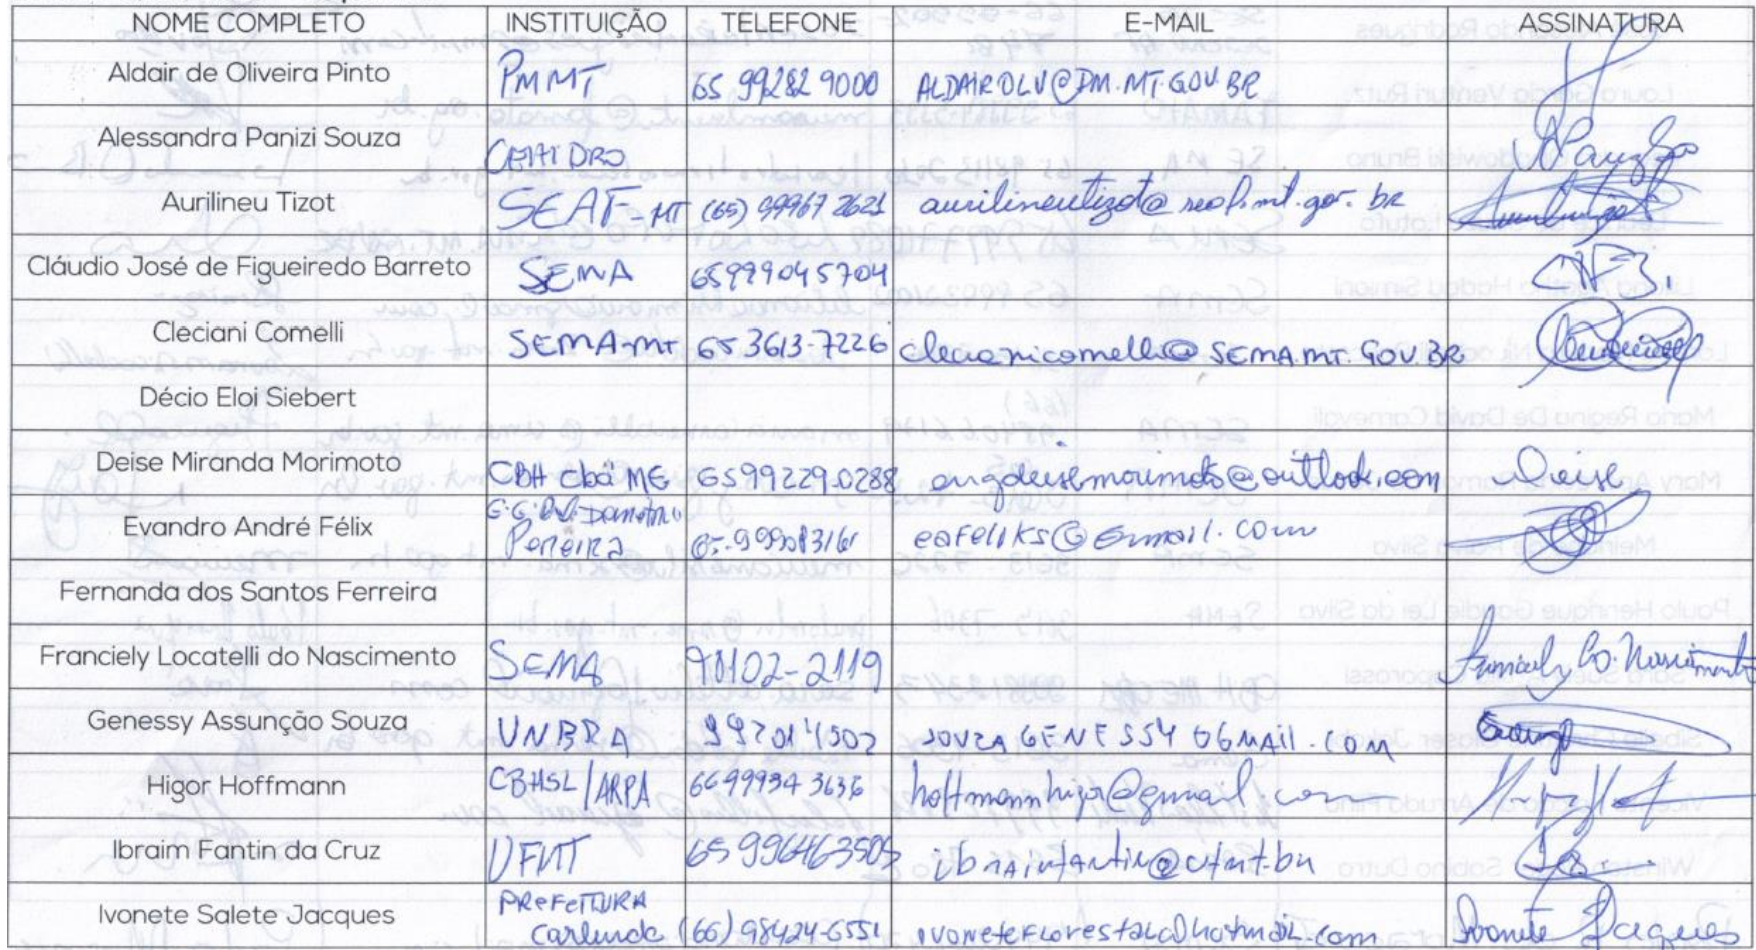 NOME COMPLETO INSTITUIÇÃO TELEFONE E-MAIL ASSINATURA
Aldair de Oliveira Pinto PMMT 65 99282 9000 ALDAIROLV@PM.MT.GOV.BR
Alessandra Panizi Souza
Aurilineu Tizot SEAF-MT (65) 99967 2621 aurilineutizot@seaf.mt.gov.br
Cláudio José de Figueiredo Barreto SEMA 65999045704
Cleciani Comelli SEMA-MT 65 3613-7226 @SEMA.MT.GOV.BR
Décio Eloi Siebert
Deise Miranda Morimoto CBH Cbá ME 65992290288 engdeisemorimoto@outlook.com Deise
Evandro André Félix Pereira eafeliks@Gmail.com
Fernanda dos Santos Ferreira
Franciely Locatelli do Nascimento SEMA 98102-2119
Genessy Assunção Souza UNBRA SOUZAGENESSY@GMAIL.COM
Higor Hoffmann CBHSL/ARPA 66 99934 3636 hoffmannhigor@gmail.com
Ibraim Fantin da Cruz UFMT 65 996463505 ibraimfantin@ufmt.br
PREFEITURA
Ivonete Salete Jacques Carlinda (66) 98424-6551 ivoneteflorestal@hotmail.com Ivonete Jacques